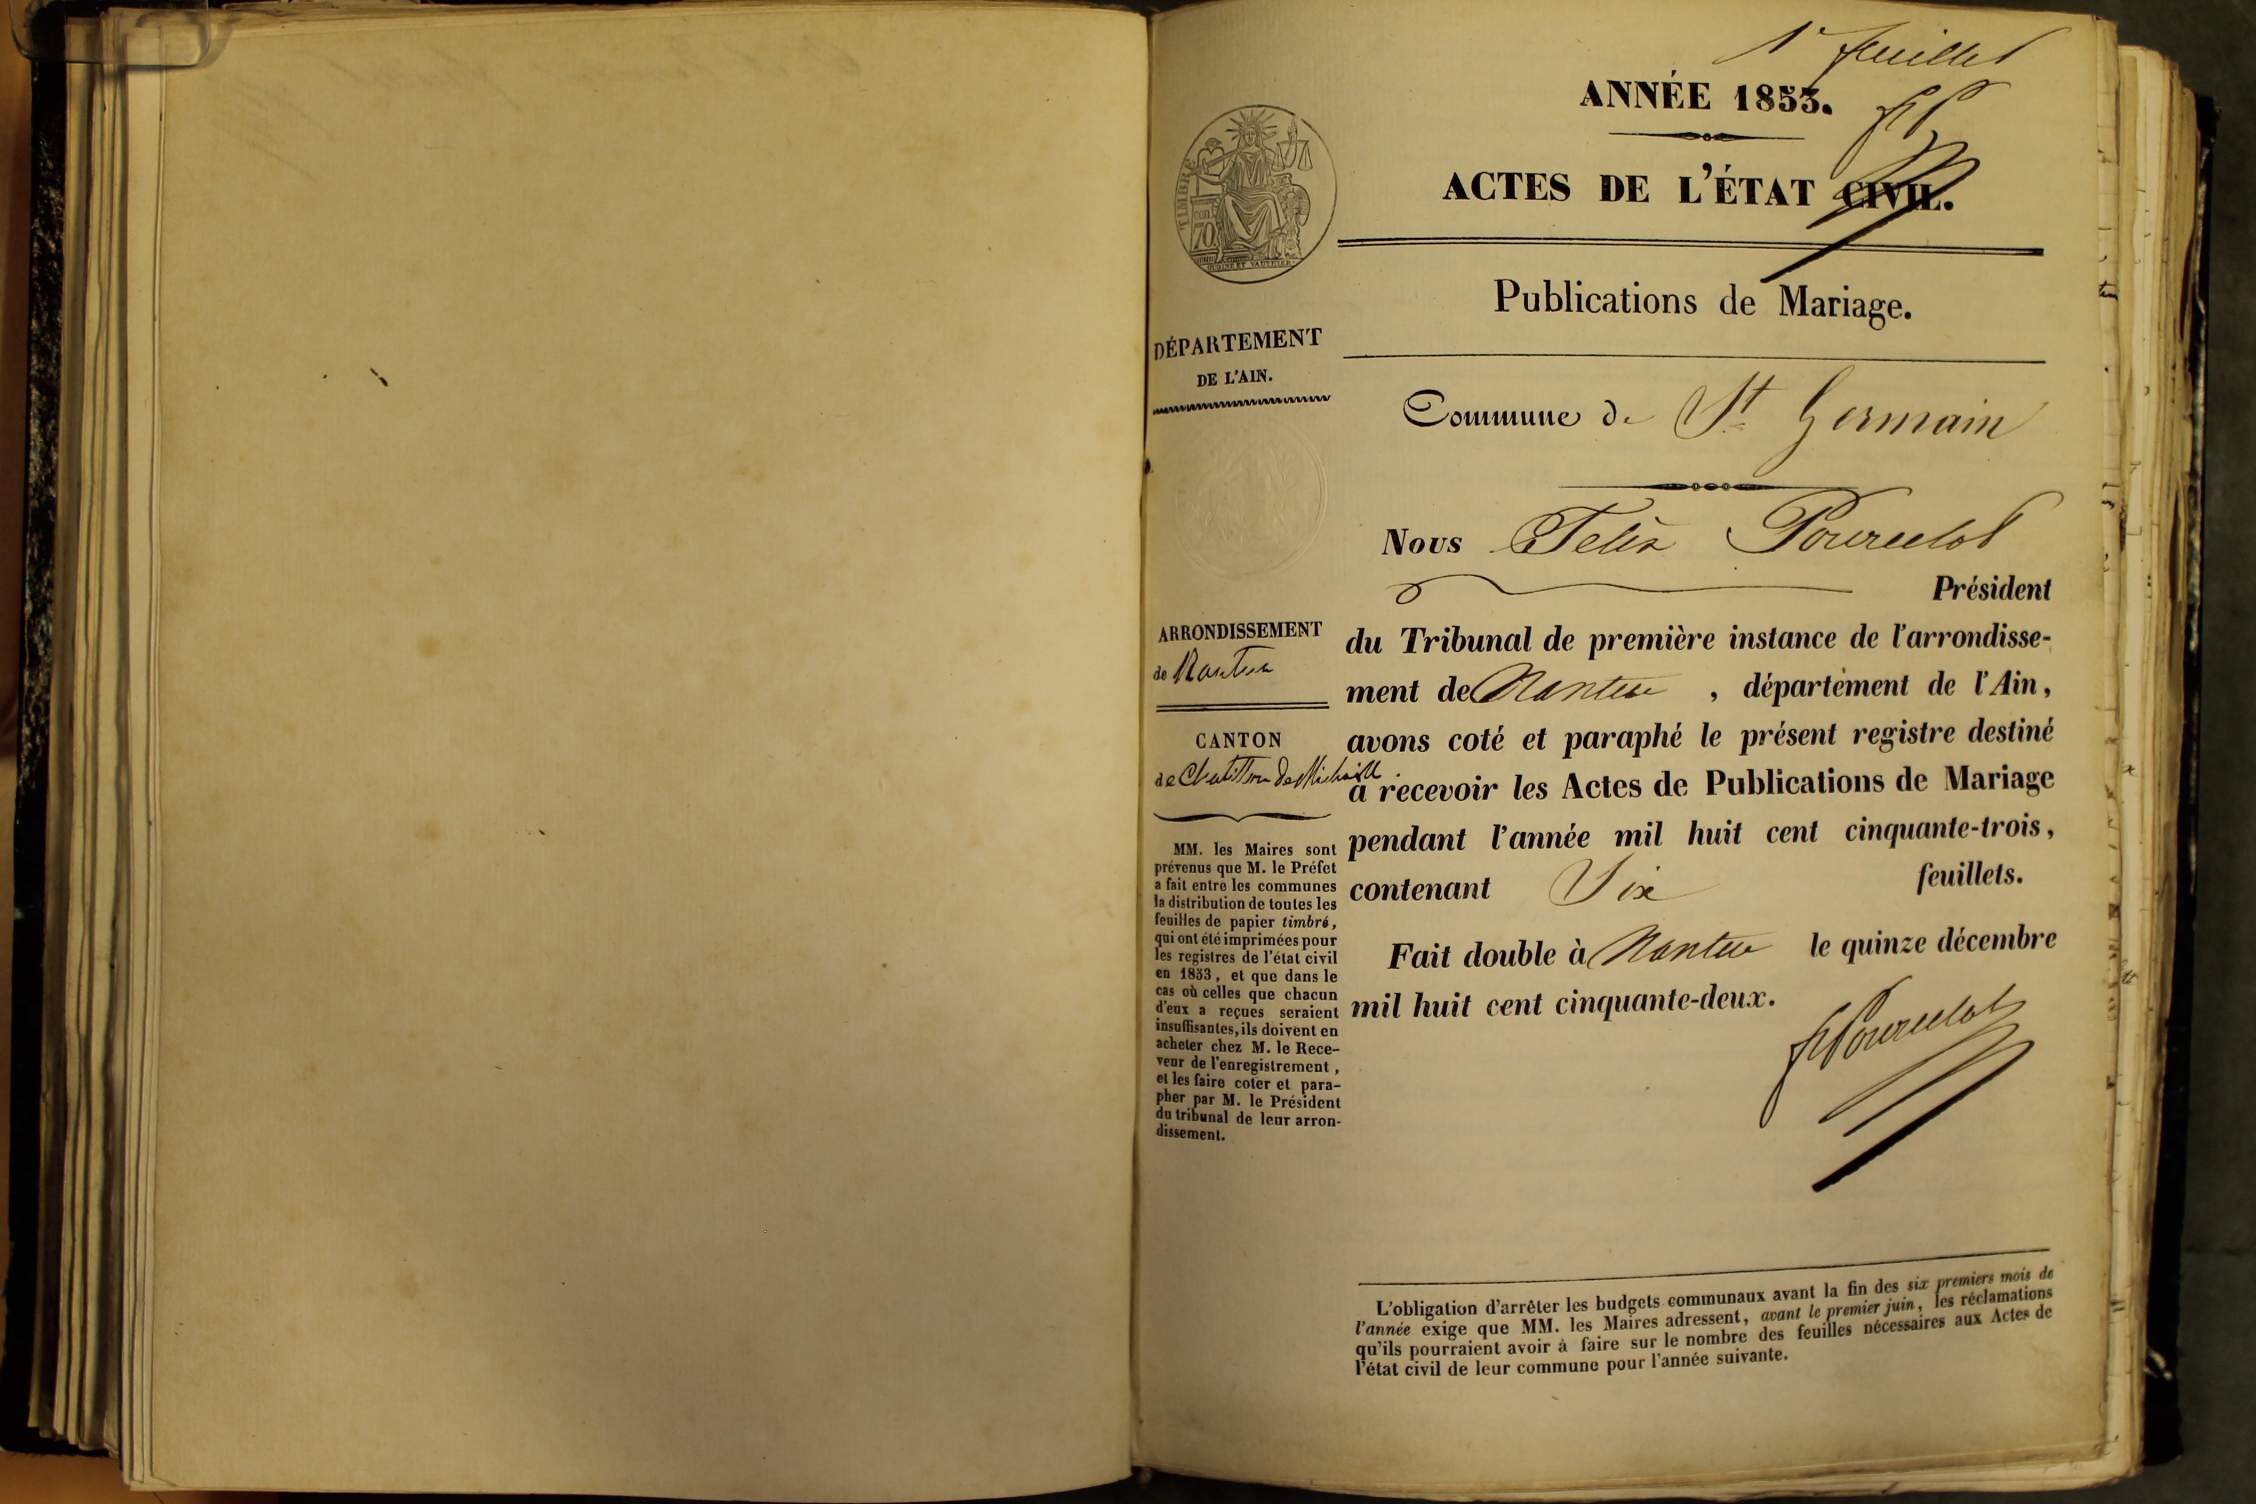 1er feuillet
ANNÉE 1853.
ACTES DE L'ÉTAT CIVIL.
Publications de Mariage.
Commune de St Germain
Nous Felix Pourcelot
Président
du Tribunal de première instance de l'arrondisse-
ment de Nantua , département de l'Ain,
avons coté et paraphé le présent registre destiné
à recevoir les Actes de Publications de Mariage
pendant l'année mil huit cent cinquante-trois,
contenant Six feuillets.
Fait double à Nantua le quinze décembre
mil huit cent cinquante-deux.
F Pourcelot
L'obligation d'arrêter les budgets communaux avant la fin des six premiers mois de
l'année exige que MM. les Maires adressent, avant le premier juin, les réclamations
qu'ils pourraient avoir à faire sur le nombre des feuilles nécessaires aux Actes de
l'état civil de leur commune pour l'année suivante.
TIMBRE
70
DÉPARTEMENT
DE L'AIN.
ARRONDISSEMENT
de Nantua
CANTON
de Chatillon de Michaille
MM. les Maires sont
prévenus que M. le Préfet
a fait entre les communes
la distribution de toutes les
feuilles de papier timbré,
qui ont été imprimées pour
les registres de l'état civil
en 1853, et que dans le
cas où celles que chacun
d'eux a reçues seraient
insuffisantes, ils doivent en
acheter chez M. le Rece-
veur de l'enregistrement,
et les faire coter et para-
pher par M. le Président
du tribunal de leur arron-
dissement.